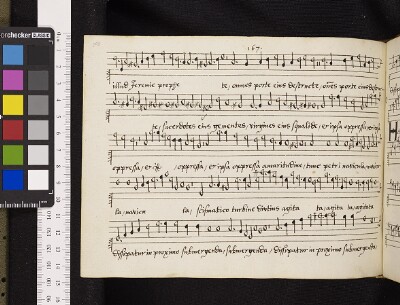 orchecker
167.
illud Jeremie prophe te, omnes porte eius destructe, oēs porte eius destru
cte, sacerdotes eius gementes, virgines eius squalide, et ipsa oppressa, et ipsa
oppressa, et ip̄ , oppressa, et ipsa oppressa amaritudine, tunc petri navicula, navicu
la, navicu la, scismatico turbine diutius agita ta, agita ta, agitata
dissipatur in proximo submergenda, submergenda, dissipatur in proximo submergenda,